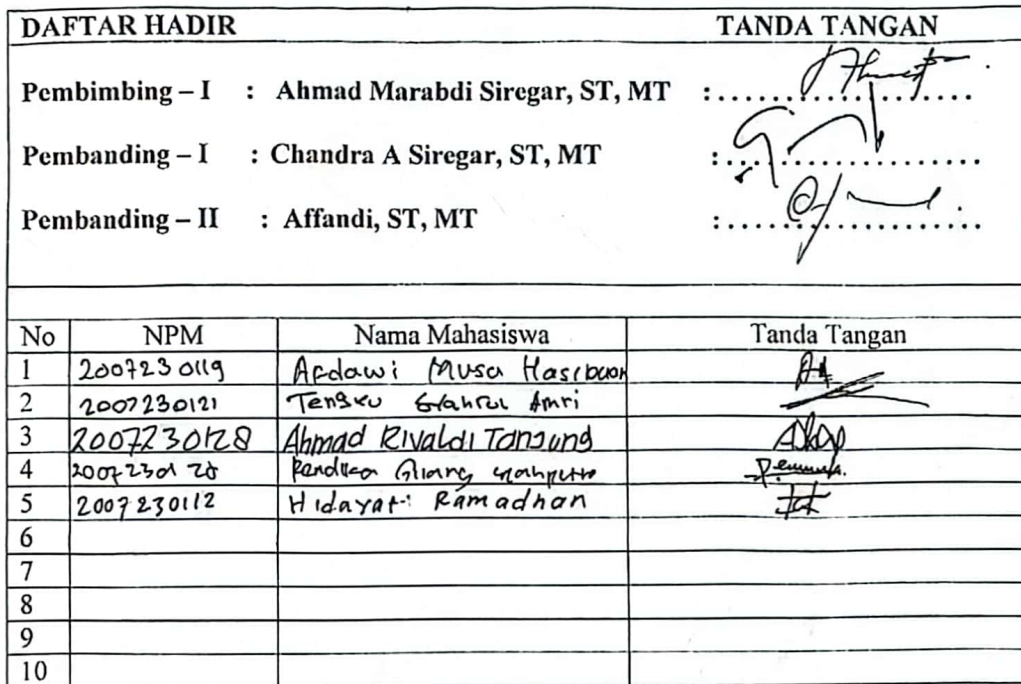 DAFTAR HADIR TANDA TANGAN
Pembimbing – I : Ahmad Marabdi Siregar, ST, MT :....................
Pembanding – I : Chandra A Siregar, ST, MT :....................
Pembanding – II : Affandi, ST, MT :....................
No NPM Nama Mahasiswa Tanda Tangan
1 2007230119 Afdawi Musa Hasibuan
2 2007230121 Tengku Amri
3 2007230128 Ahmad Rivaldi Tanjung
4 Gilang
5 2007230112 Hidayat Ramadhan
6
7
8
9
10